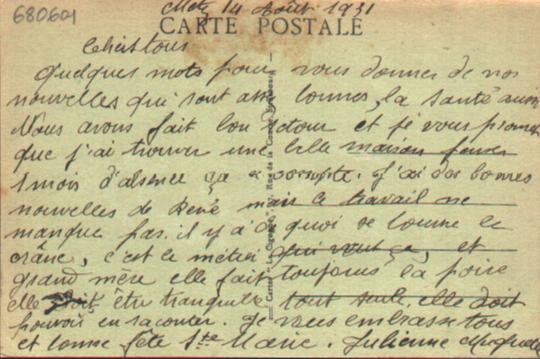 680.601
Metz 14 Août 1931
CARTE POSTALE
Chers tous
Quelques mots pour vous donner de nos
nouvelles qui sont assez bonnes, la santé aussi
Nous avons fait bon retour et je vous promet
que j'ai trouver une belle maison
1 mois d'absence ça se compte. J'ai des bonnes
nouvelles de René mais le travail ne
manque pas. il y a de quoi se bourrer le
crâne, c'est le métier qui veut ça, et
grand mère elle fait toujours la poire
elle être tranquille tout seule, elle doit
pouvoir en raconter. Je vous embrasse tous
et bonne fête Ste Marie. Julienne